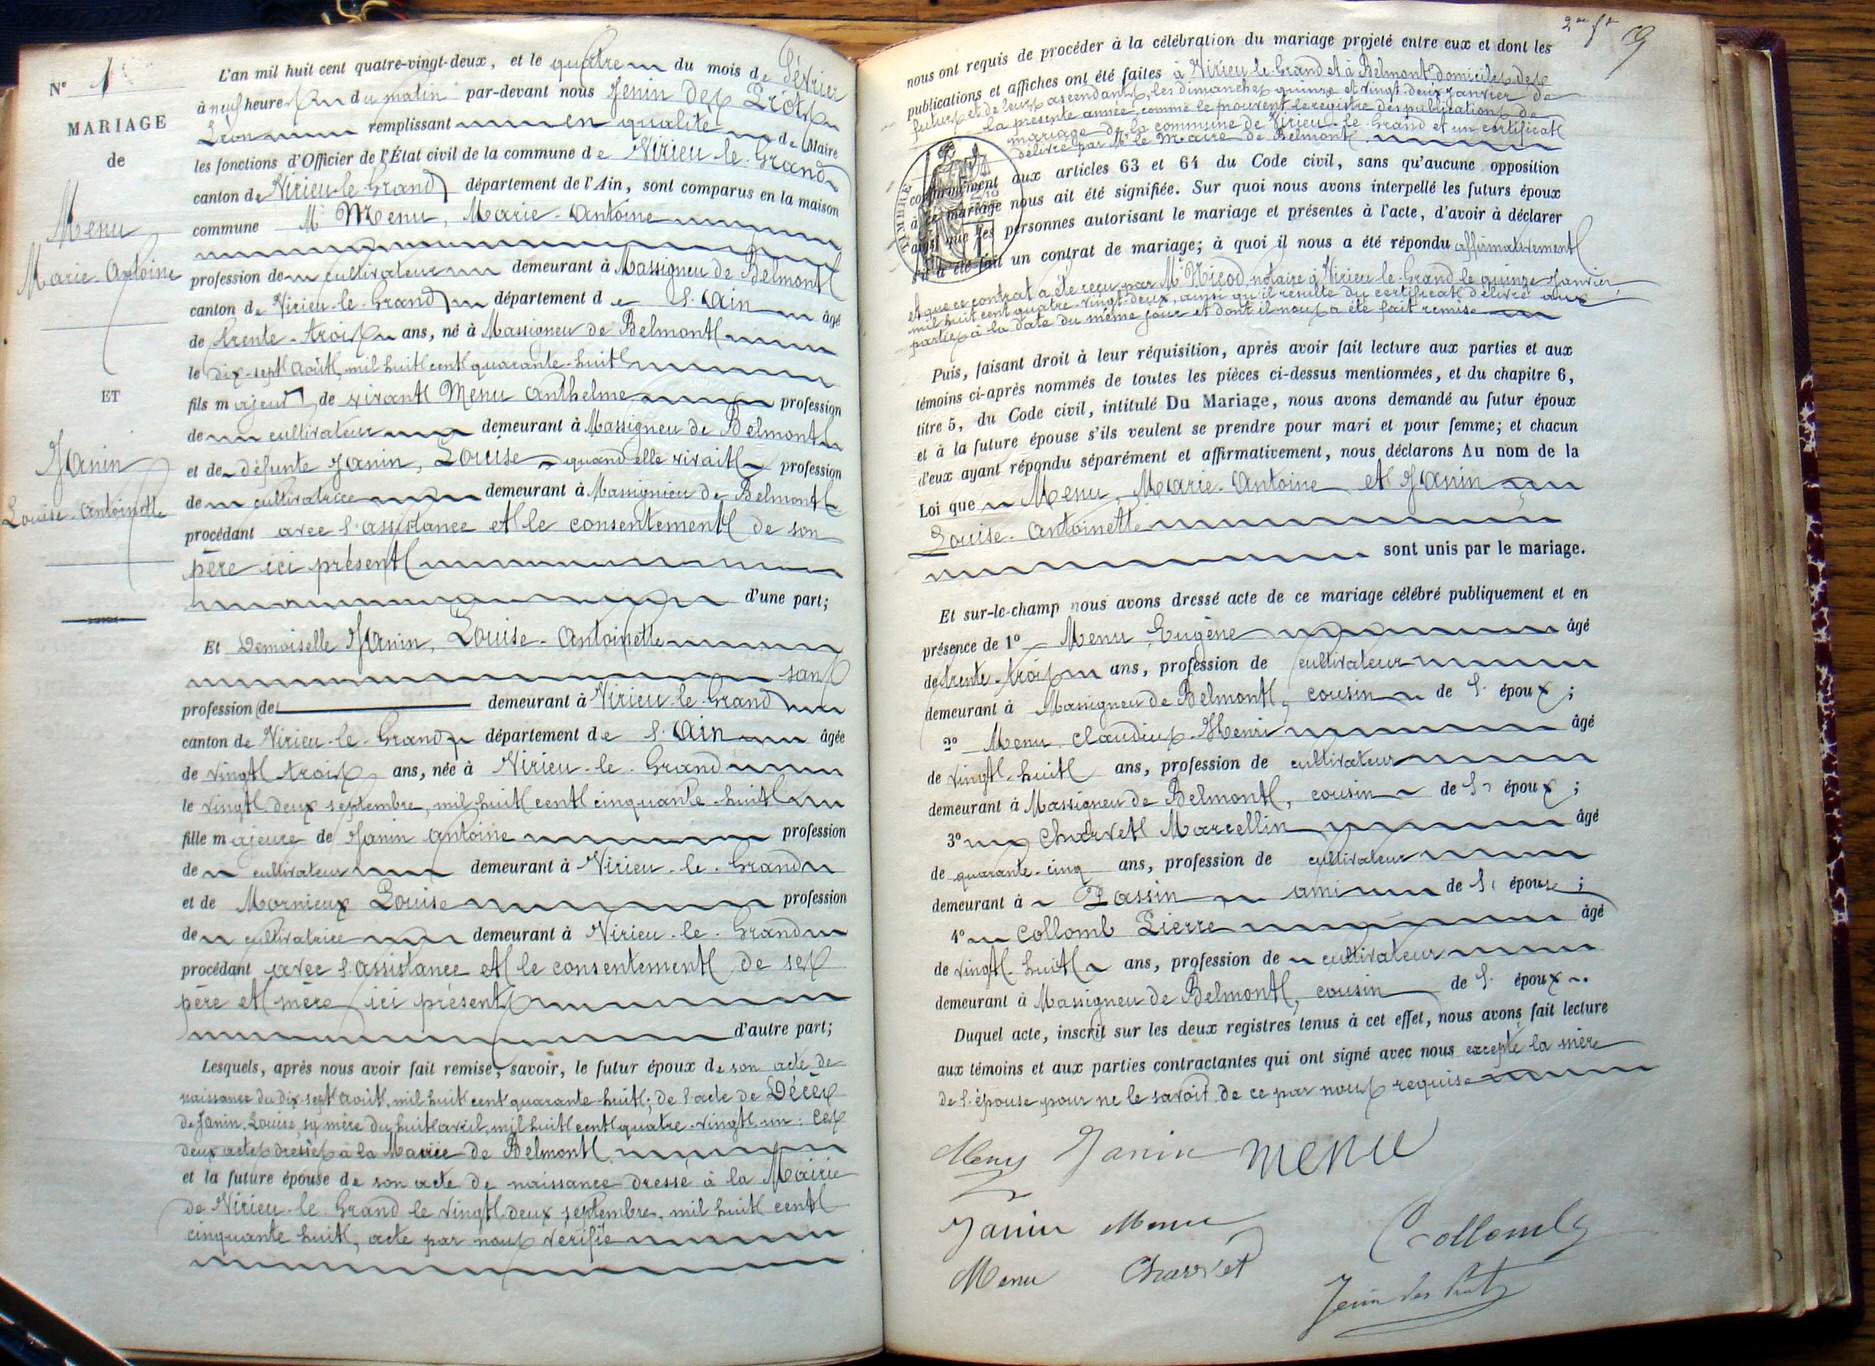 N° 1
MARIAGE
de
Menu
Marie-Antoine
ET
Janin
Louise-Antoinette
L'an mil huit cent quatre-vingt-deux, et le quatre du mois de Février
à neuf heures du matin par-devant nous Jenin des Prots
Léon remplissant en qualité de Maire
les fonctions d'Officier de l'État civil de la commune de Virieu-le-Grand
canton de Virieu-le-Grand département de l'Ain, sont comparus en la maison
commune Mr Menu, Marie-Antoine
profession de cultivateur demeurant à Massigneu de Belmont
canton de Virieu-le-Grand département de l'Ain âgé
de trente-trois ans, né à Massigneu de Belmont
le dix-sept Août, mil huit cent quarante-huit
fils majeur de vivant Menu Anthelme profession
de cultivateur demeurant à Massigneu de Belmont
et de défunte Janin, Louise quand elle vivait profession
de cultivatrice demeurant à Massignieu de Belmont
procédant avec l'assistance et le consentement de son
père ici présent
d'une part;
Et Demoiselle Janin, Louise-Antoinette
sans
profession de demeurant à Virieu-le-Grand
canton de Virieu-le-Grand département de l'Ain âgée
de vingt trois ans, née à Virieu-le-Grand
le vingt deux septembre, mil huit cent cinquante-huit
fille majeure de Janin Antoine profession
de cultivateur demeurant à Virieu-le-Grand
et de Mornieux Louise profession
de cultivatrice demeurant à Virieu-le-Grand
procédant avec l'assistance et le consentement de ses
père et mère ici présents
d'autre part;
Lesquels, après nous avoir fait remise, savoir, le futur époux de son acte de
naissance du dix-sept août, mil huit cent quarante-huit; de l'acte de Décès
de Janin Louise, sa mère du huit avril, mil huit cent quatre-vingt-un: ces
deux actes dressés à la Mairie de Belmont
et la future épouse de son acte de naissance dressé à la Mairie
de Virieu-le-Grand le vingt deux septembre, mil huit cent
cinquante huit, acte par nous vérifié
2me ft 9
nous ont requis de procéder à la célébration du mariage projeté entre eux et dont les
publications et affiches ont été faites à Virieu-le-Grand et à Belmont domiciles des
futurs et de leurs ascendants, les dimanches quinze et vingt-deux janvier de
la présente année, comme le prouvent le registre des publications de
mariage de la commune de Virieu-le-Grand et un certificat
délivré par Mr le Maire de Belmont
conformément aux articles 63 et 64 du Code civil, sans qu'aucune opposition
à ce mariage nous ait été signifiée. Sur quoi nous avons interpellé les futurs époux
ainsi que les personnes autorisant le mariage et présentes à l'acte, d'avoir à déclarer
s'il a été fait un contrat de mariage; à quoi il nous a été répondu affirmativement
et que ce contrat a été reçu par Me Nicod notaire à Virieu-le-Grand le quinze Janvier,
mil huit cent quatre-vingt-deux, ainsi qu'il résulte du certificat délivré aux
parties à la date du même jour et dont il nous a été fait remise
TIMBRE
Puis, faisant droit à leur réquisition, après avoir fait lecture aux parties et aux
témoins ci-après nommés de toutes les pièces ci-dessus mentionnées, et du chapitre 6,
titre 5, du Code civil, intitulé Du Mariage, nous avons demandé au futur époux
et à la future épouse s'ils veulent se prendre pour mari et pour femme; et chacun
d'eux ayant répondu séparément et affirmativement, nous déclarons Au nom de la
Loi que Menu, Marie-Antoine et Janin
Louise-Antoinette
sont unis par le mariage.
Et sur-le-champ nous avons dressé acte de ce mariage célébré publiquement et en
présence de 1° Menu Eugène âgé
de trente-trois ans, profession de cultivateur
demeurant à Massigneu de Belmont, cousin de l'époux;
2° Menu Claudius-Henri âgé
de vingt-huit ans, profession de cultivateur
demeurant à Massigneu de Belmont, cousin de l'époux;
3° Charvet Marcellin âgé
de quarante-cinq ans, profession de cultivateur
demeurant à Passin ami de l'épouse;
4° Collomb Pierre âgé
de vingt-huit ans, profession de cultivateur
demeurant à Massigneu de Belmont, cousin de l'époux
Duquel acte, inscrit sur les deux registres tenus à cet effet, nous avons fait lecture
aux témoins et aux parties contractantes qui ont signé avec nous excepté la mère
de l'épouse pour ne le savoir de ce par nous requise
Menu Janin menu
Janin Menu Collomb
Menu Charvet
Jenin des Prots